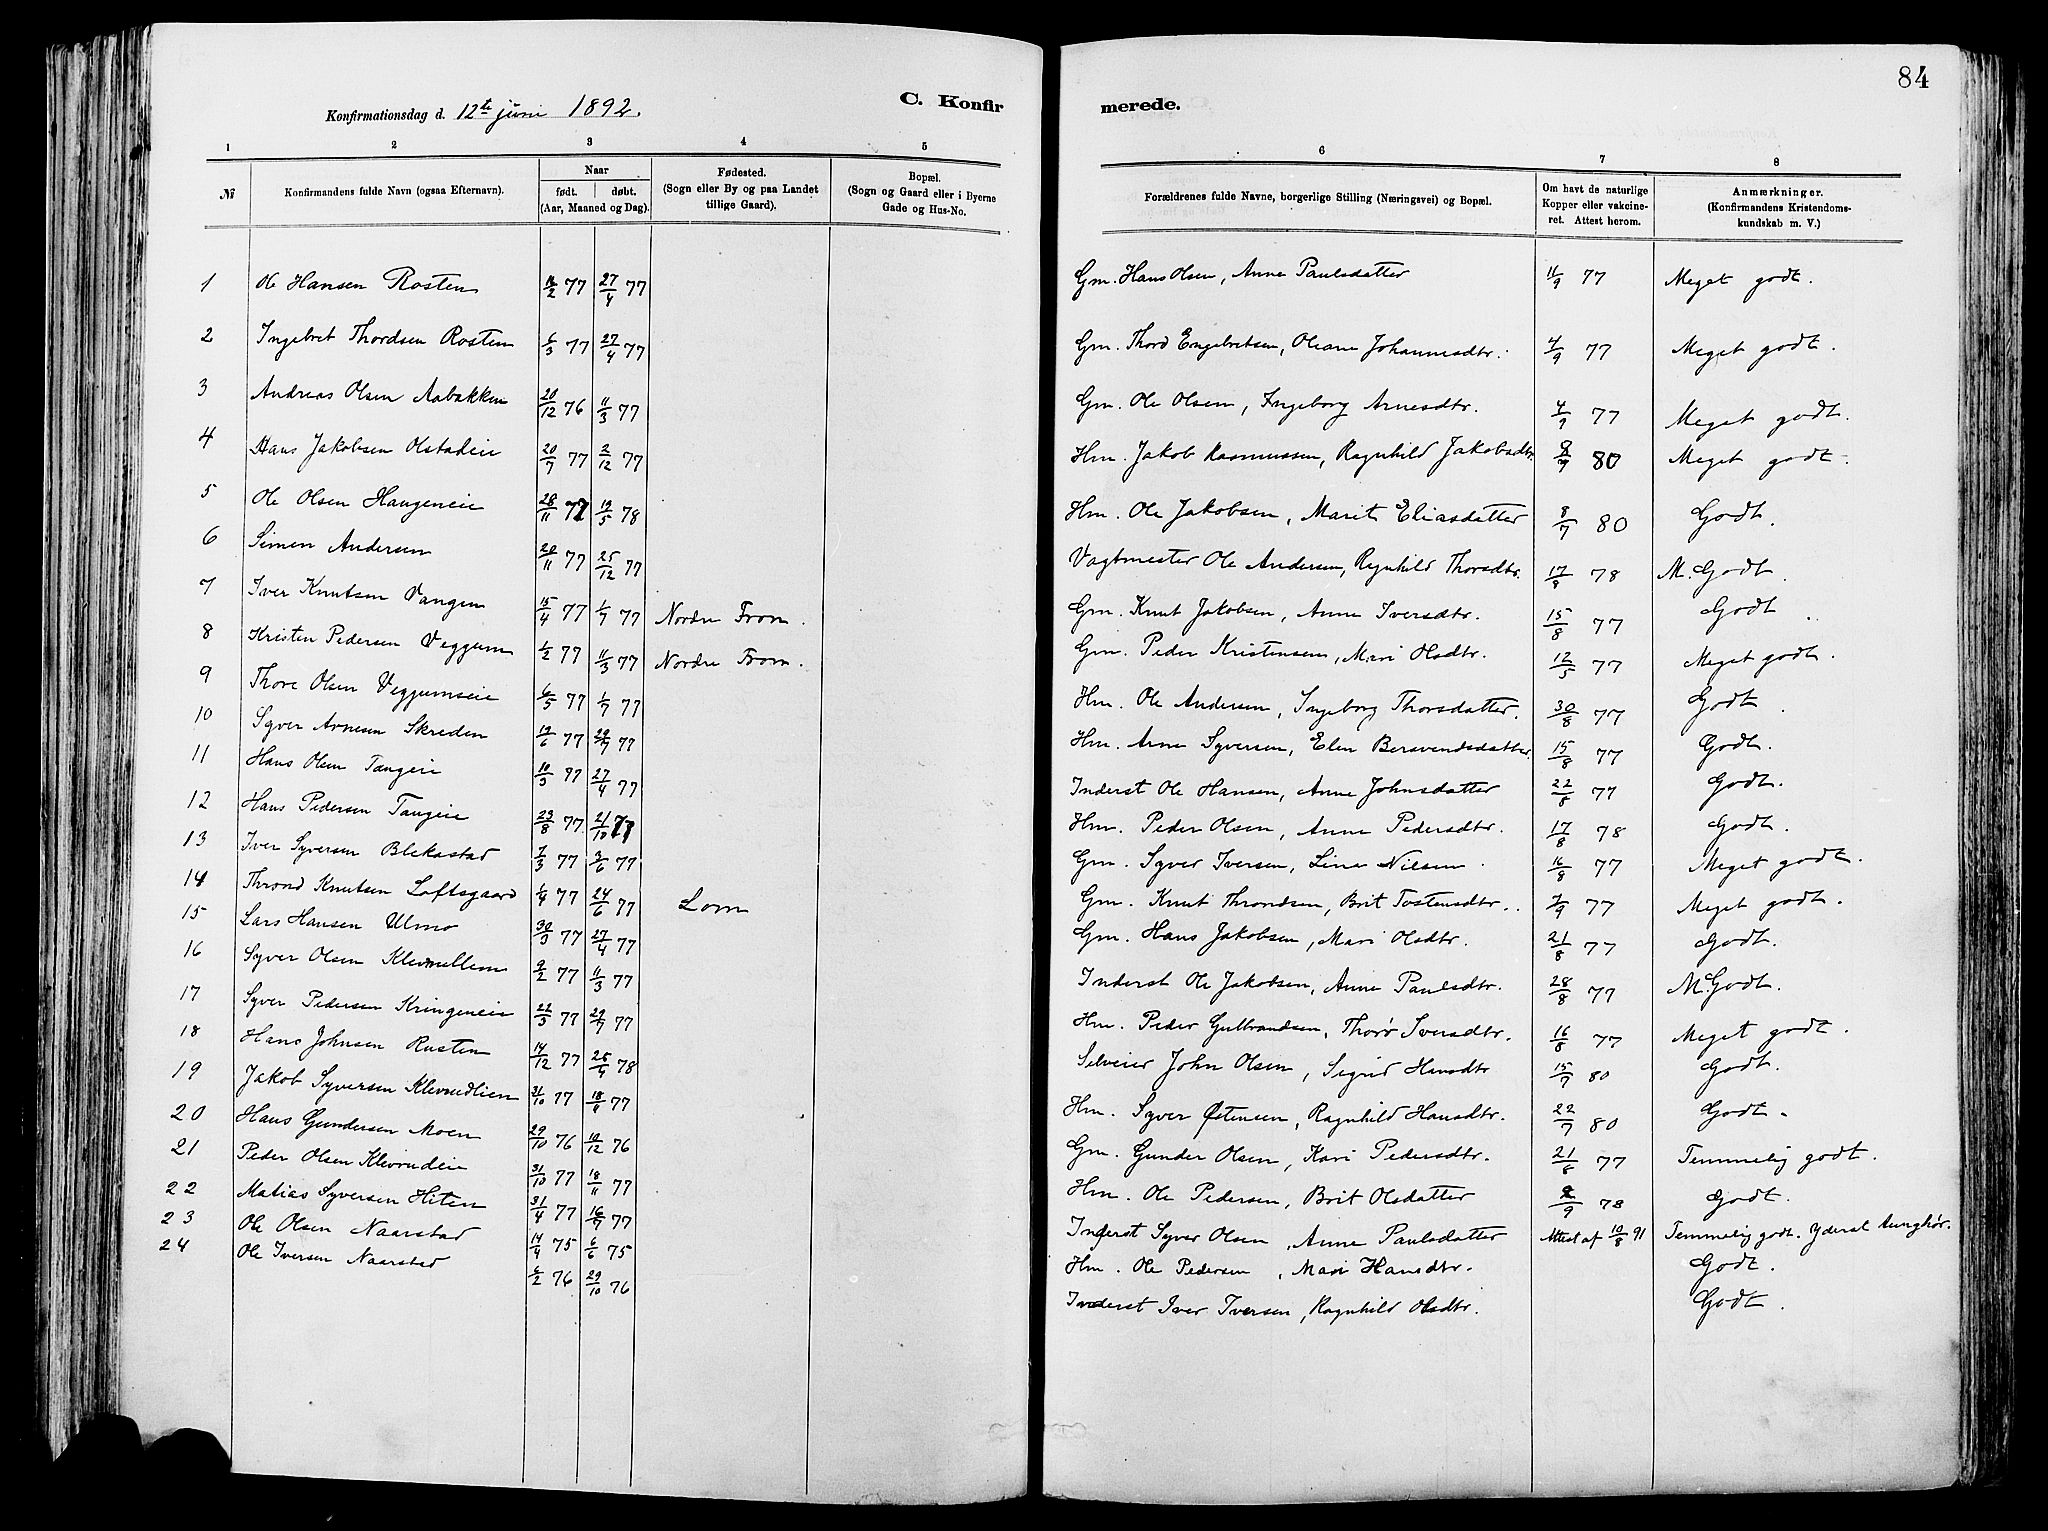 84
C. Konfir merede.
Konfirmationsdag d. 12te juni 1892.
1 2 3 4 5 6 7 8
№ Konfirmandens fulde Navn (ogsaa Efternavn). Naar født. døbt. (Aar, Maaned og Dag). Fødested. (Sogn eller By og paa Landet tillige Gaard). Bopæl. (Sogn og Gaard eller i Byerne Gade og Hus-No. Forældrenes fulde Navne, borgerlige Stilling (Næringsvei) og Bopæl. Om havt de naturlige Kopper eller vakcineret. Attest herom. Anmærkninger. (Konfirmandens Kristendomskundskab m. V.)
1 Ole Hansen Rosten 77 27/4 77 Gm. Hans Olsen, Anne Paulsdatter 11/9 77 Meget godt.
2 Ingebret Thordsen Rosten 6/3 77 27/4 77 Gm. Thord Engebretsen, Oleane Johannesdtr. 4/9 77 Meget godt.
3 Andreas Olsen Aabakken 20/12 76 11/3 77 Gm. Ole Olsen, Ingeborg Arnesdtr. 4/9 77 Meget godt.
4 Hans Jakobsen Olstadeie 20/7 77 2/12 77 Hm. Jakob Rasmussen, Ragnhild Jakobsdtr. 80 Meget godt.
5 Ole Olsen Haugeneie 28/11 77 19/5 78 Hm. Ole Jakobsen, Marit Eliasdatter 8/7 80 Godt.
6 Simen Andersen 20/11 77 25/12 77 Vagtmester Ole Andersen, Ragnhild Thorsdtr. 17/8 78 M. Godt.
7 Iver Knutsen Vangen 15/4 77 1/7 77 Nordre Fron. Gm. Knut Jakobsen, Anne Iversdtr. 15/8 77 Godt
8 Kristen Pedersen Veggum 1/2 77 11/3 77 Nordre Fron. Gm. Peder Kristensen, Mari Olsdtr. 12/5 77 Meget godt.
9 Thore Olsen Veggumseie 6/5 77 1/7 77 Hm. Ole Andersen, Ingeborg Thorsdatter. 30/8 77 Godt.
10 Syver Arnesen Skreden 19/6 77 29/7 77 Hm. Arne Syversen, Elen Bersvendsdatter. 15/8 77 Godt.
11 Hans Olsen Tangeie 10/3 77 27/4 77 Inderst Ole Hansen, Anne Johnsdatter 22/8 77 Godt.
12 Hans Pedersen Tangeie 23/8 77 21/10 77 Hm. Peder Olsen, Anne Pedersdtr. 17/8 78 Godt.
13 Iver Syversen Blekastad 7/3 77 3/6 77 Gm. Syver Iversen, Line Nilsen. 16/8 77 Meget godt.
14 Thrond Knutsen Loftsgaard 1/4 77 24/6 77 Lom Gm. Knut Throndsen, Brit Tostensdtr. 7/9 77 Meget godt.
15 Lars Hansen Ulmo 30/3 77 27/4 77 Gm. Hans Jakobsen, Mari Olsdtr. 21/8 77 Godt.
16 Syver Olsen 9/2 77 11/3 77 Inderst Ole Jakobsen, Anne Paulsdtr. 28/8 77 M. Godt.
17 Syver Pedersen Kringeneie 22/5 77 29/7 77 Hm. Peder Gulbrandsen, Thorø Iversdtr. 16/8 77 Meget godt.
18 Hans Johnsen Rusten 14/12 77 78 Selveier John Olsen, Sigrid Hansdtr 15/7 80 Godt.
19 Jakob Syversen Klevrudlien 31/10 77 18/11 77 Hm. Syver Østensen, Ragnhild Hansdtr. 22/7 80 Godt.
20 Hans Gundersen Moen 29/10 76 10/12 76 Gm. Gunder Olsen, Kari Pedersdtr. 21/8 77 Temmelig godt.
21 Peder Olsen Klevrudeie 31/10 77 18/11 77 Hm. Ole Pedersen, Brit Olsdatter 78 Godt.
22 Matias Syversen Hiten 31/4 77 16/7 77 Inderst Syver Olsen, Anne Paulsdatter Attest af 10/8 91 Temmelig godt. Yderst tunghør.
23 Ole Olsen Naarstad 14/4 75 6/6 75 Hm. Ole Pedersen, Mari Hansdtr. Godt.
24 Ole Iversen Naarstad 6/2 76 29/10 76 Inderst Iver Iversen, Ragnhild Olsdtr. Godt.